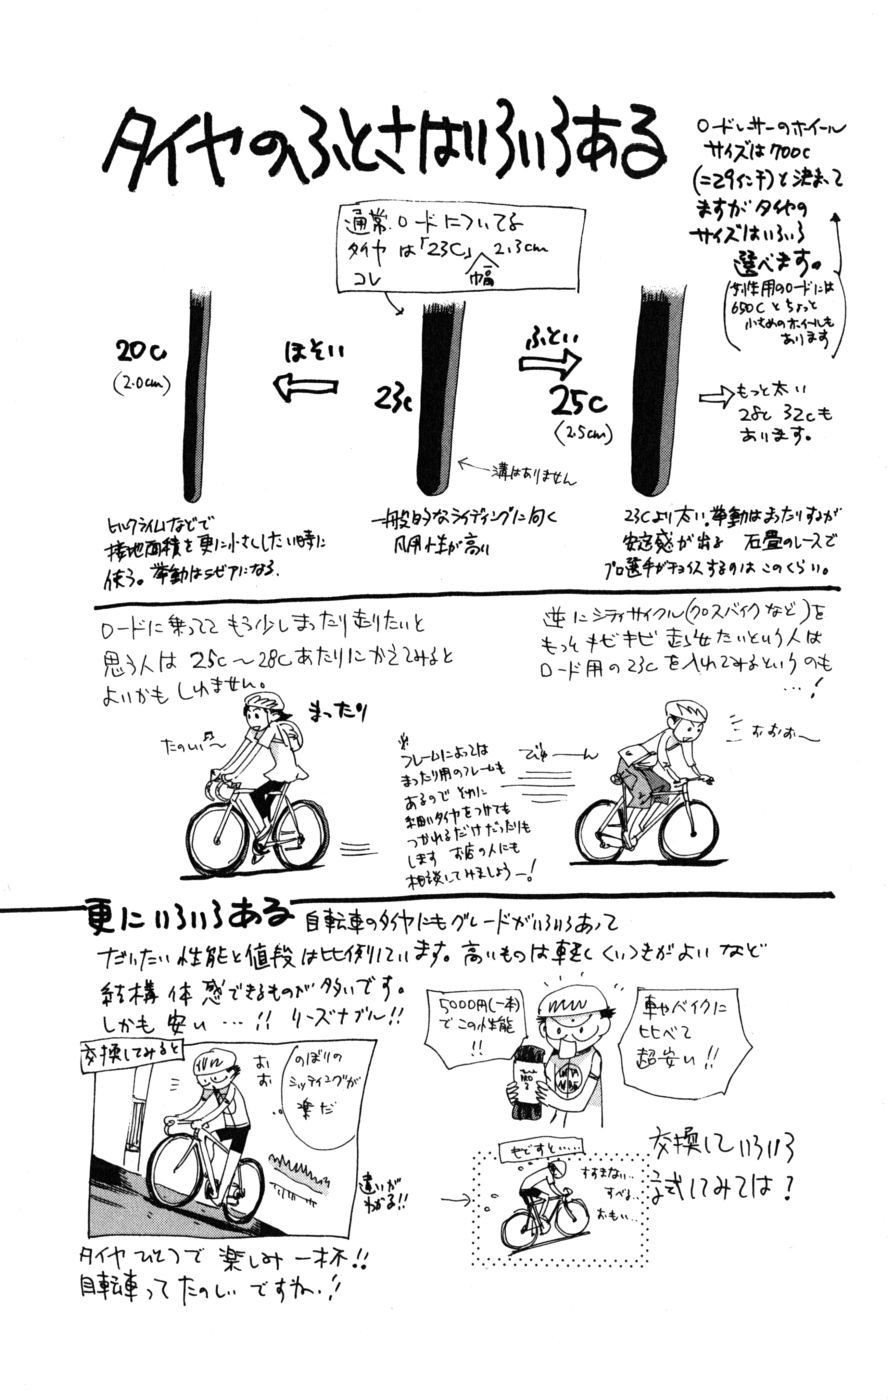 タイヤのふとさはいろいろある
ロードレーサーのホイール
サイズは700c
(=29インチ)と決まって
ますがタイヤの
サイズはいろいろ
選べます。
(女性用のロードには
650Cとちょっと
小さめのホイールも
あります)
通常ロードについてる
タイヤは「23C」 2.3cm
コレ 幅
20c
(2.0cm)
ほそい
23c
ふとい
25c
(2.5cm)
もっと太い
28c 32cも
あります。
溝はありません
ヒルクライムなどで
接地面積を更に小さくしたい時に
使う。挙動はシビアになる.
一般的なライディングに向く
汎用性が高い
23Cより太い。挙動はまったりするが
安定感が出る 石畳のレースで
プロ選手がチョイスするのはこのくらい。
ロードに乗ってて もう少しまったり走りたいと
思う人は 25c〜28cあたりにかえてみると
よいかもしれません。
逆にシティサイクル(クロスバイクなど)を
もっとキビキビ走らせたいという人は
ロード用の23cを入れてみるというのも
…!
まったり
たのしい〜
※
フレームによっては
まったり用のフレームも
あるので それに
細いタイヤをつけても
つかれるだけだったりも
します お店の人にも
相談してみましょうー!
びゅーん
おおお〜
更にいろいろある 自転車のタイヤにもグレードがいろいろあって
だいたい性能と値段は比例しています。高いものは軽く くいつきがよいなど
結構体感できるものが多いです。
しかも安い…!! リーズナブル!!
5000円(一本)
でこの性能
!!
車やバイクに
比べて
超安い!!
PRO
2
交換してみると
おお
のぼりの
シッティングが
楽だ
違いが
わかる!!
もどすと……
すすまない…
すべる…
おもい…
交換していろいろ
試してみては?
タイヤひとつで 楽しみ一杯!!
自転車って たのしいですね!!